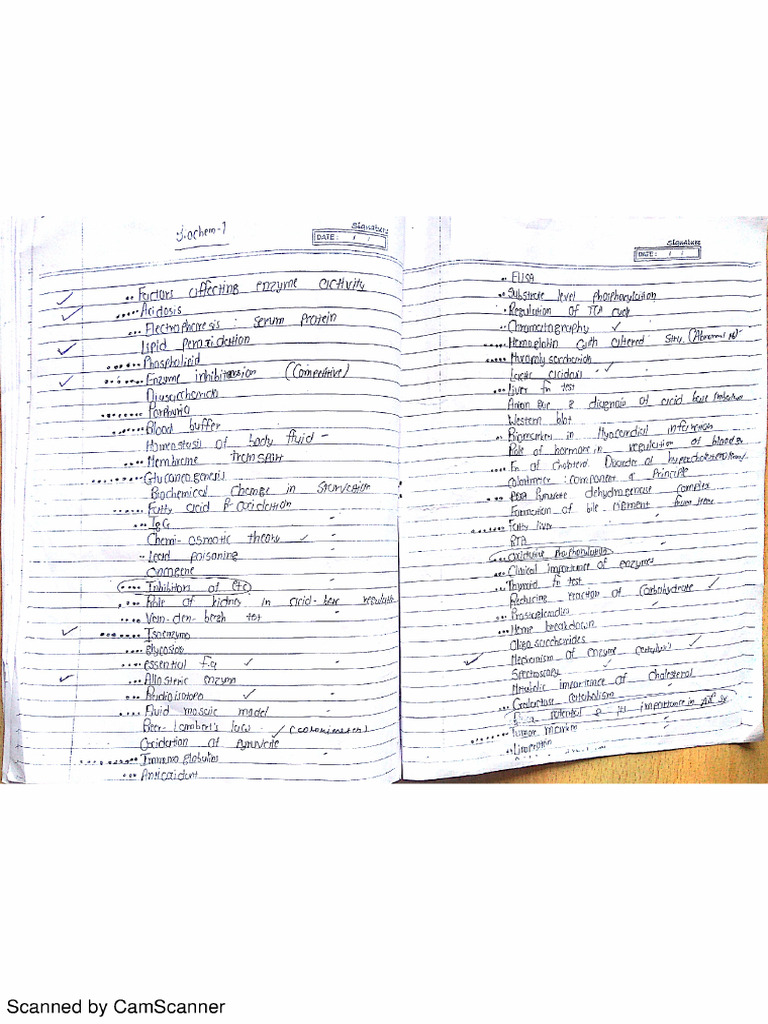 Biochem-1
Signature
DATE: / /
.. Factors affecting enzyme activity
..... Acidosis
... Electrophoresis : serum protein
Lipid peroxidation
....... Phospholipid
....... Enzyme inhibition (Competitive)
Mucopolysaccharide
....... Porphyria
..... Blood buffer
Homeostasis of body fluid -
.... Membrane transport
......... Gluconeogenesis
Biochemical change in starvation
..... Fatty acid β-oxidation
.. IgG
Chemi-osmotic theory ✓
.. Lead poisoning
.... Inhibitors of ETC
.... Role of kidney in acid-base
... Van-den-bergh test
........ Isoenzyme
.... glycosides
..... essential f.a ✓
... Allosteric enzyme
... Radioisotope ✓
.... Fluid mosaic model
Beer-Lambert's law ✓ (colorimeter)
Oxidation of Pyruvate
......... Immunoglobulin
... Antioxidant
Signature
DATE: / /
.. ELISA
.. Substrate level phosphorylation
. Regulation of TCA cycle
.. Chromatography ✓
..... Hemoglobin with altered stru. (Abnormal Hb)
..... Mucopolysaccharide
Lactic acidosis ✓
... Liver fn test
Anion gap & diagnosis of acid base
Western blot
.. Biomarkers in Myocardial infarction
Role of hormone in regulation of blood
.... Fn of cholesterol. Disorder of hypercholesterolemia
Colorimeter : component & Principle
... Pyruvate dehydrogenase complex
Formation of bile-pigment from heme
....... Fatty liver
RTA
... Oxidative phosphorylation
... Clinical importance of enzymes
... Thyroid fn test
Reducing reaction of carbohydrate ✓
... Prostaglandins
... Heme breakdown
Oligosaccharides
Mechanism of enzyme (catalysis) ✓
Spectroscopy ✓
Metabolic importance of cholesterol
... Galactose catabolism
potential & its importance in
........ Tumor marker
.. Lipoprotein
Scanned by CamScanner